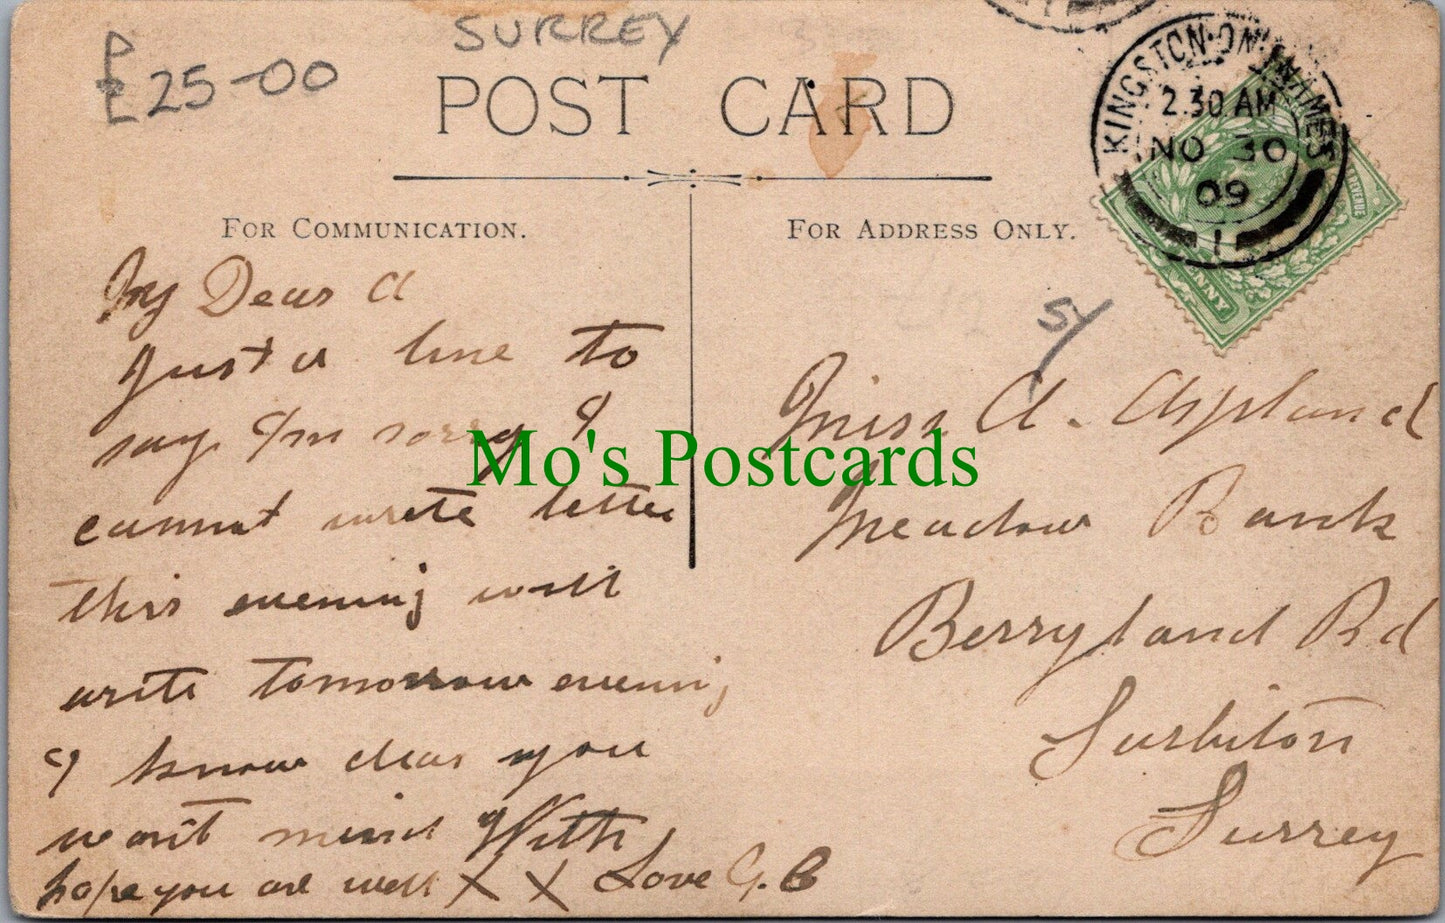 SURREY
£25-00
POST CARD
KINGSTON-ON-THAMES
2.30 AM
NO 30
09
1
FOR COMMUNICATION.
FOR ADDRESS ONLY.
My Dear A
Just a line to
say I'm sorry I
cannot write letter
this evening will
write tomorrow evening
I know dear you
won't mind With
hope you are well X X Love G. B
SY
Miss A. Aspland
Meadow Bank
Berryland Rd
Surbiton
Surrey
Mo's Postcards